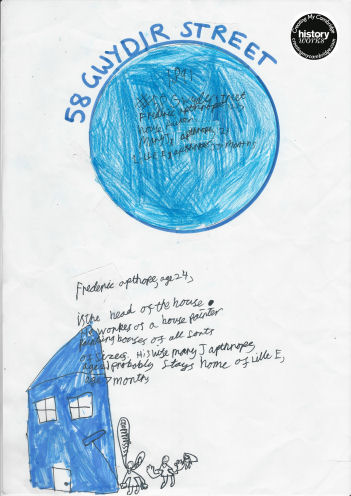 58 GWYDIR STREET
Creating My Cambridge
history
WORKS
Gwydir Street
Frederic apthorpe
house
Mary J apthorpe, 23
Lillie E apthorpe 7 Months
Frederic apthorpe, age 24,
is the head of the house.
he workes as a house painter
painting houses of all sorts
of sizes. His wife mary J apthorpe,
aged probably stays home of Lille E,
age 7 months